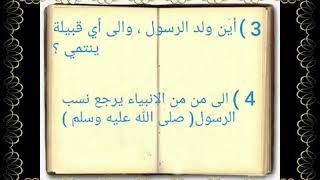 3 ) أين ولد الرسول ، والى أي قبيلة
ينتمي ؟
4 ) الى من من الانبياء يرجع نسب
الرسول( صلى الله عليه وسلم )